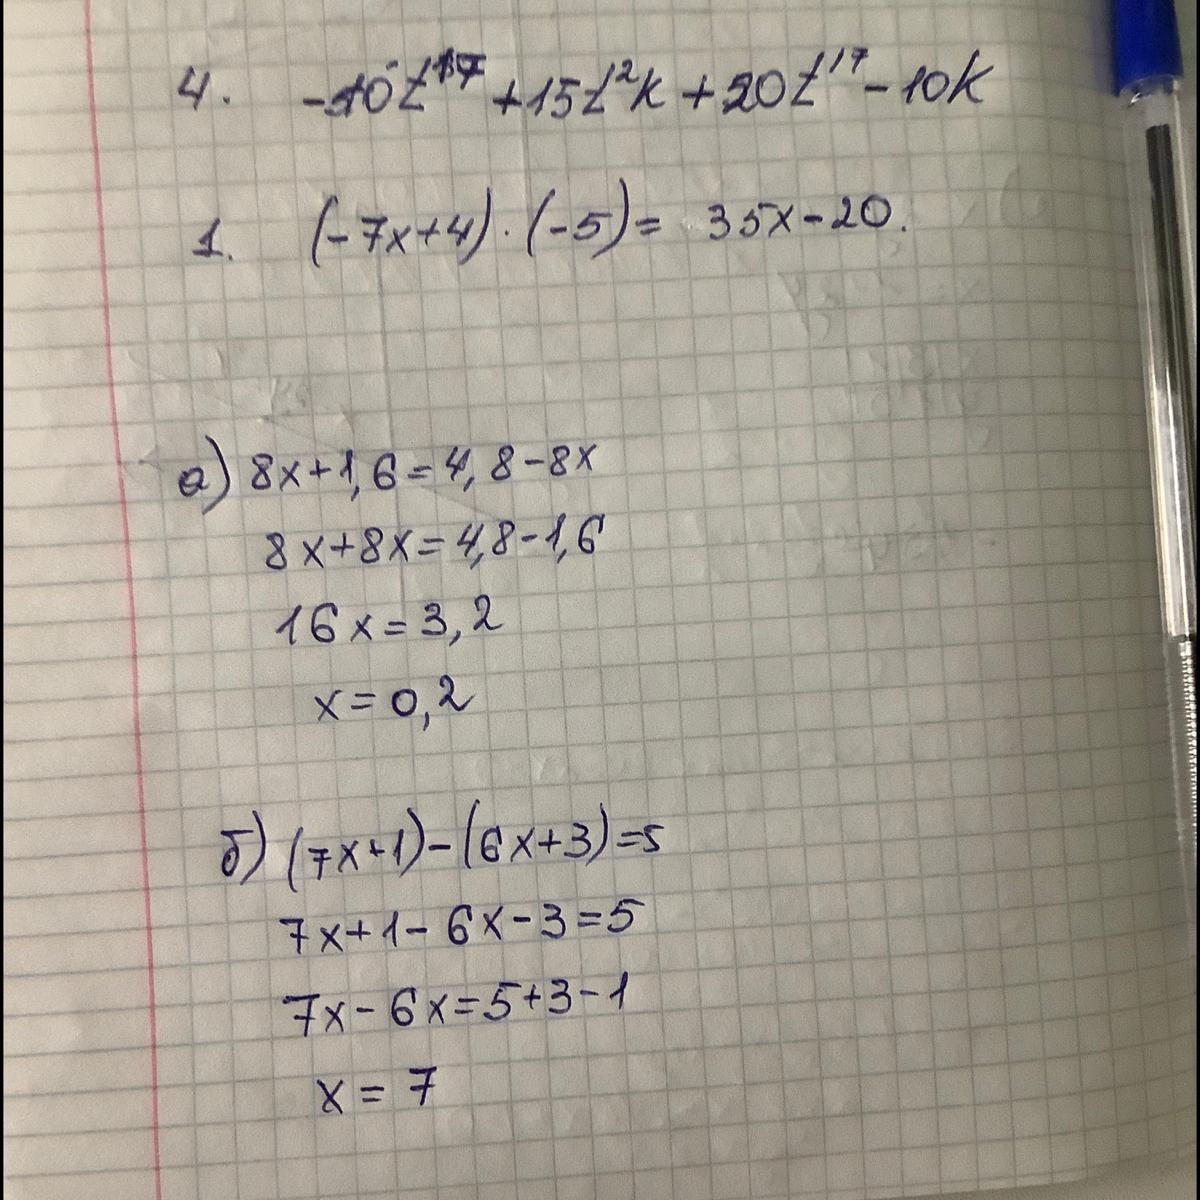 4. -10t¹⁷ + 15t²k + 20t¹⁷ - 10k
1. (-7x+4)·(-5)= 35x-20.
а) 8x+1,6=4,8-8x
8x+8x=4,8-1,6
16x=3,2
x=0,2
б) (7x+1)-(6x+3)=5
7x+1-6x-3=5
7x-6x=5+3-1
x=7